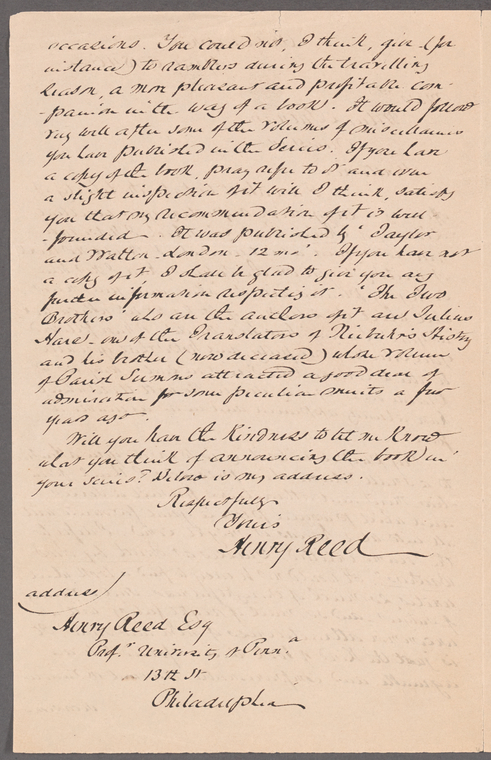 occasions. You could not, I think, give (for
instance) to ramblers during the travelling
season, a more pleasant and profitable com-
-panion in the way of a book. It would follow
very well after some of the volumes of miscellanies
you have published in the Series. If you have
a copy of the book, pray refer to it and even
a slight inspection of it will I think, satisfy
you that my recommendation of it is well
-founded. It was published by "Taylor
and Walton London. 12 mo." If you have not
a copy of it I shall be glad to give you any
further information respecting it. "The Two
Brothers" who are the authors of it are Julius
Hare - one of the translators of Niebuhr's History
and his brother (now deceased) whose volume
of Parish Sermons attracted a good deal of
admiration for some peculiar merits a few
years ago.
Will you have the kindness to let me know
what you think of announcing the book in
your series? Below is my address.
Respectfully
Yours
Henry Reed
address)
Henry Reed Esq
Prof.r University of Penn.a
13th St
Philadelphia